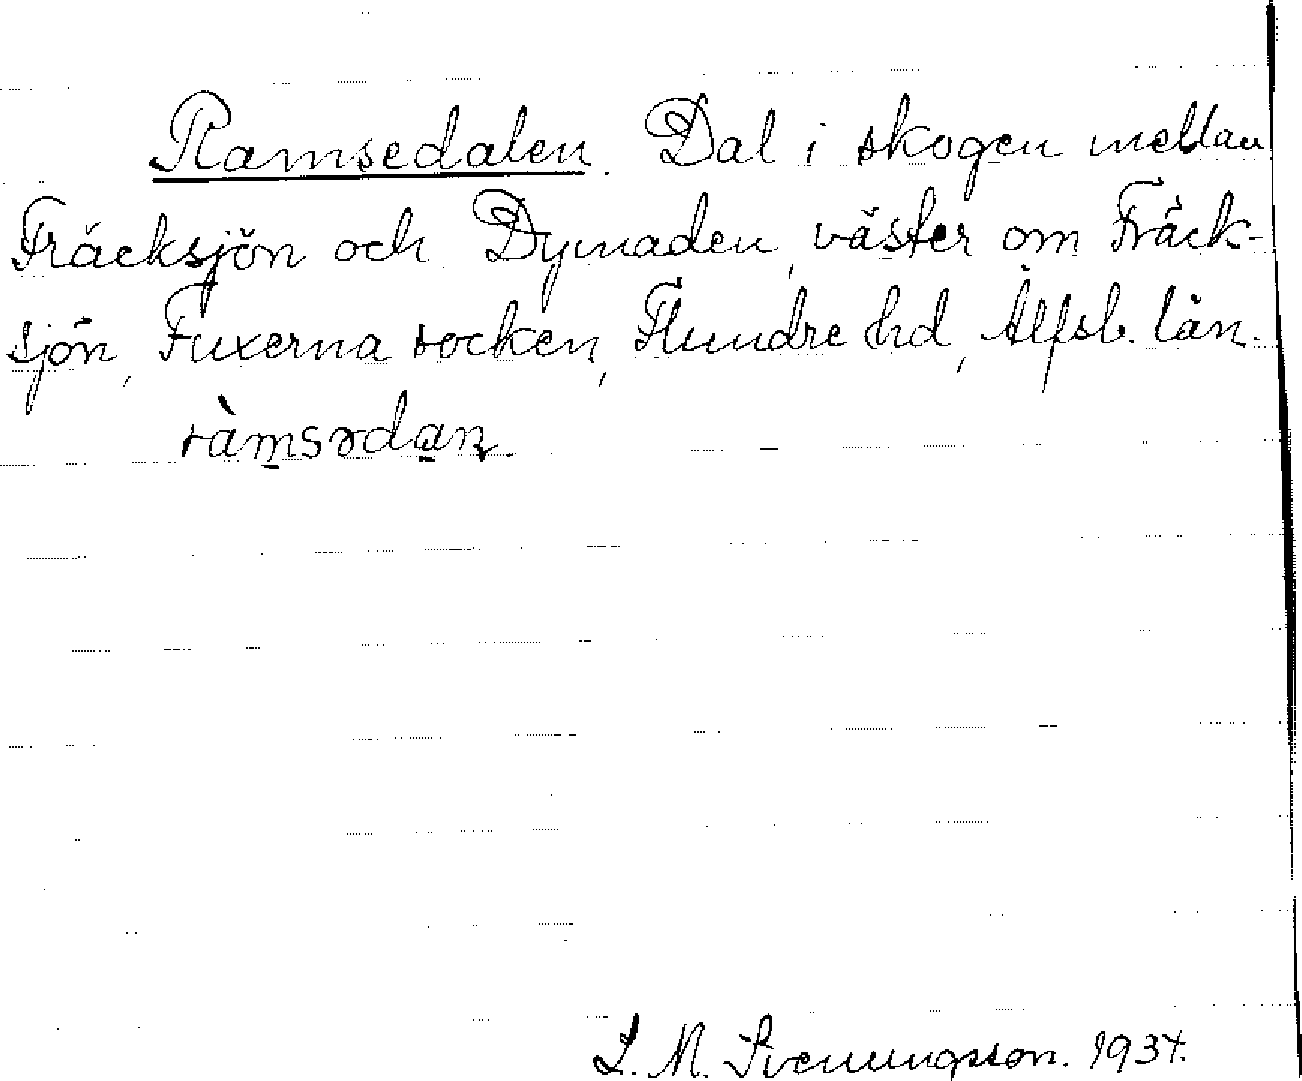 Ramsedalen. Dal i skogen mellan
Fräcksjön och Dymaden, väster om Fräck-
sjön, Fuxerna socken, Flundre hd, Älfsb. län.
ràmsədan.
L. M. Svenungsson. 1934.